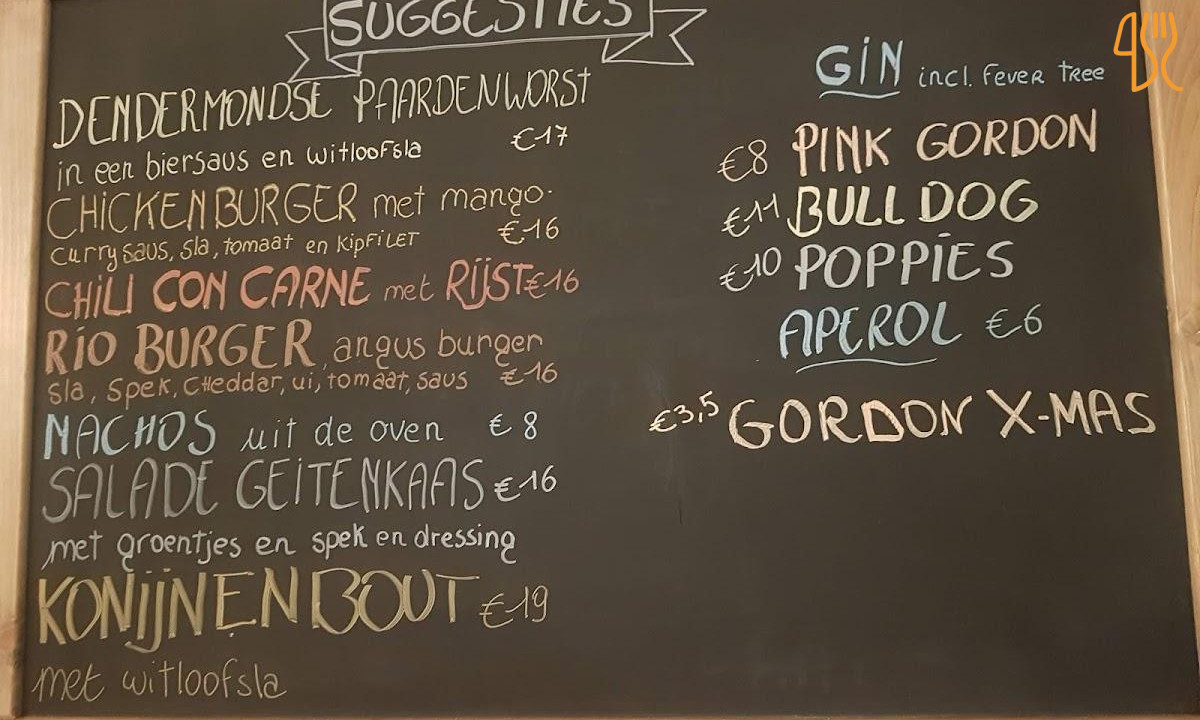 SUGGESTIES
DENDERMONDSE PAARDENWORST
in een biersaus en witloofsla €17
CHICKEN BURGER met mango-
currysaus, sla, tomaat en kipfilet €16
CHILI CON CARNE met RIJST €16
RIO BURGER, angus burger
sla, spek, cheddar, ui, tomaat, saus €16
NACHOS uit de oven €8
SALADE GEITENKAAS €16
met groentjes en spek en dressing
KONIJNENBOUT €19
met witloofsla
GIN incl. Fever Tree
€8 PINK GORDON
€11 BULLDOG
€10 POPPIES
APEROL €6
€3,5 GORDON X-MAS